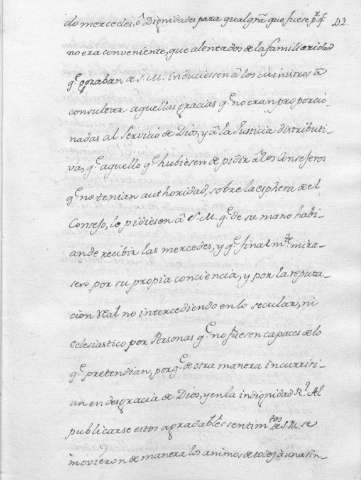 do mercedes, ó dignidades para qualqra que fuese, pr q
no era conveniente, que alentados de la familiaridad
qe gozaban de S. M. induciesen á los Ministros á
consultar aquellas gracias qe no eran proporcio
nadas al Servicio de Dios, y á la Justicia distributi
va, qe aquello qe hubiesen de pedir á los Consejeros
qe no tenian authoridad, sobre la esphera de el
Consejo, lo pidiesen á S. M. qe de su mano habi
an de recibir las mercedes, y qe finalmte mira-
sen por su propia conciencia, y por la reputa-
cion Real no intercediendo en lo secular, ni
eclesiastico por Personas qe no fuesen capaces de lo
qe pretendian, porqe de otra manera incurriri-
an en desgracia de Dios, y en la indignidad Rl. Al
publicarse estos agradables sentimtos de S. M. se
movieron de manera los animos de todos